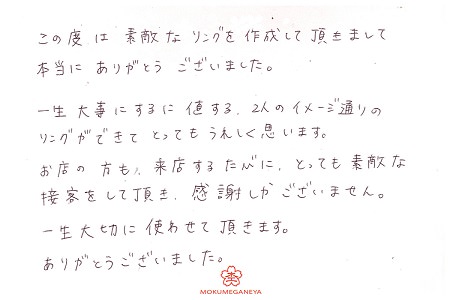 この度は 素敵な リングを 作成して 頂きまして
本当に ありがとう ございました。
一生 大事にするに 値する、2人の イメージ通りの
リングができて とっても うれしく思います。
お店の 方も、来店する たびに、とっても 素敵な
接客をして頂き、感謝しかございません。
一生大切に 使わせて 頂きます。
ありがとうございました。
MOKUMEGANEYA